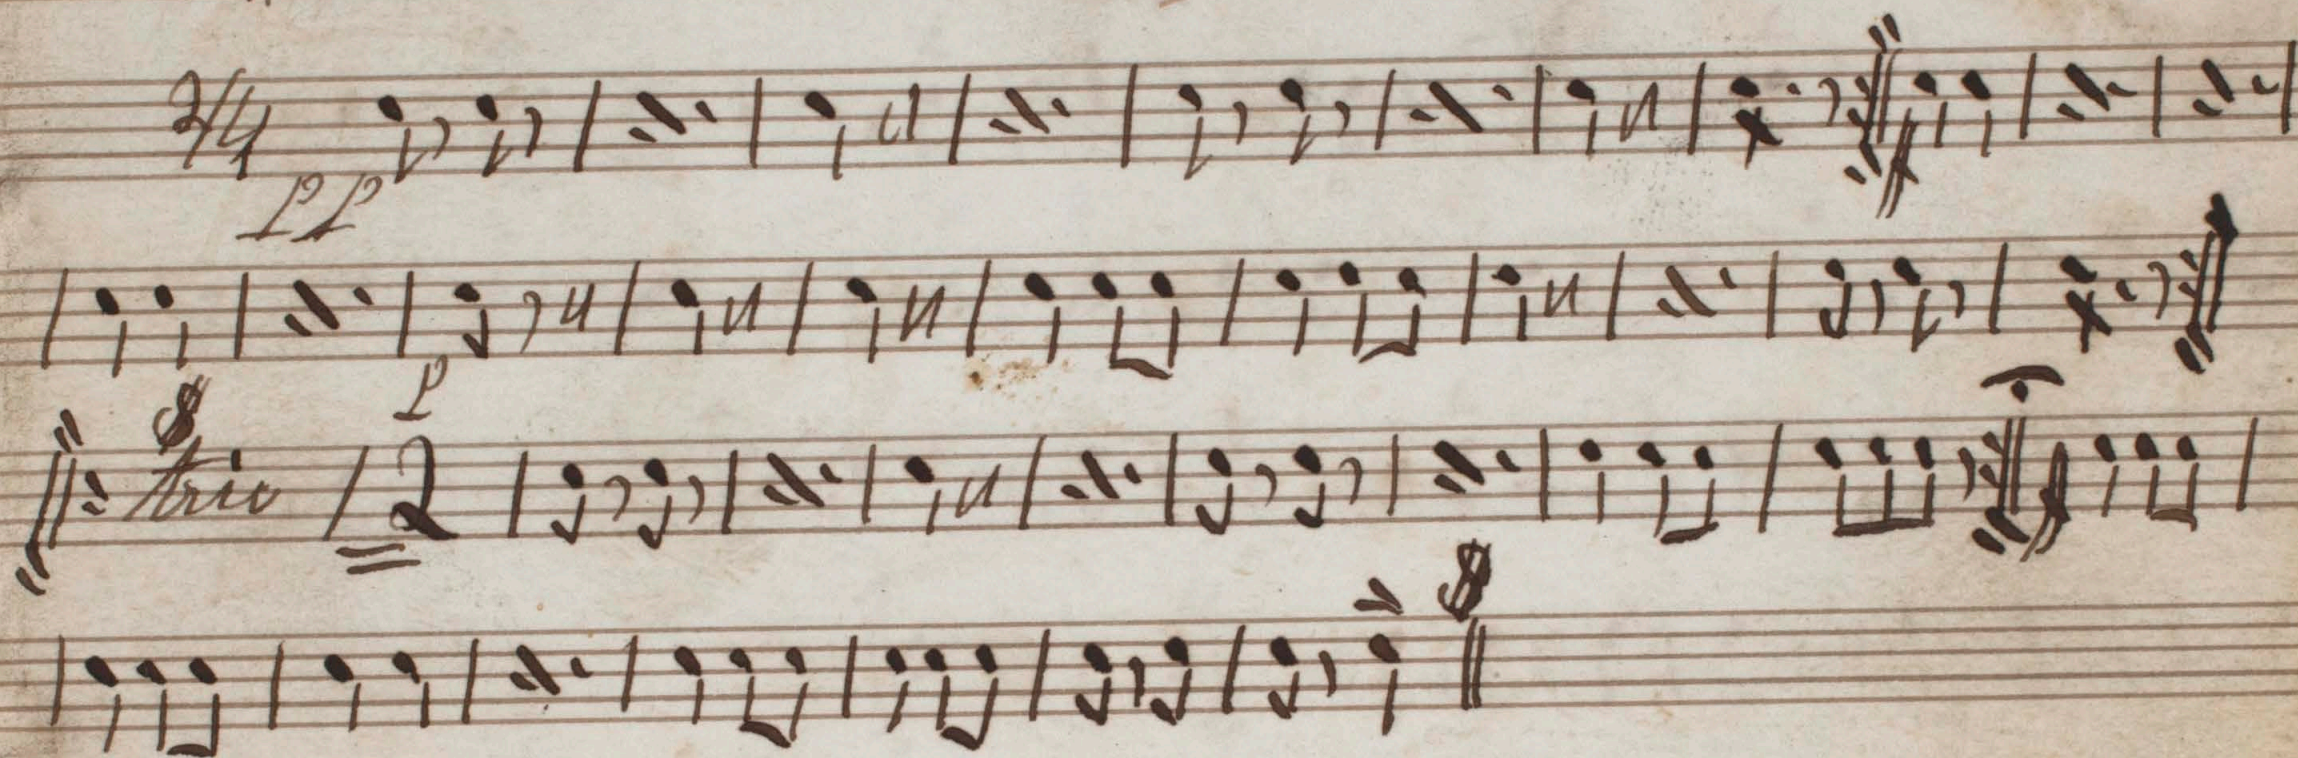 2/4
PP
P
trio 2